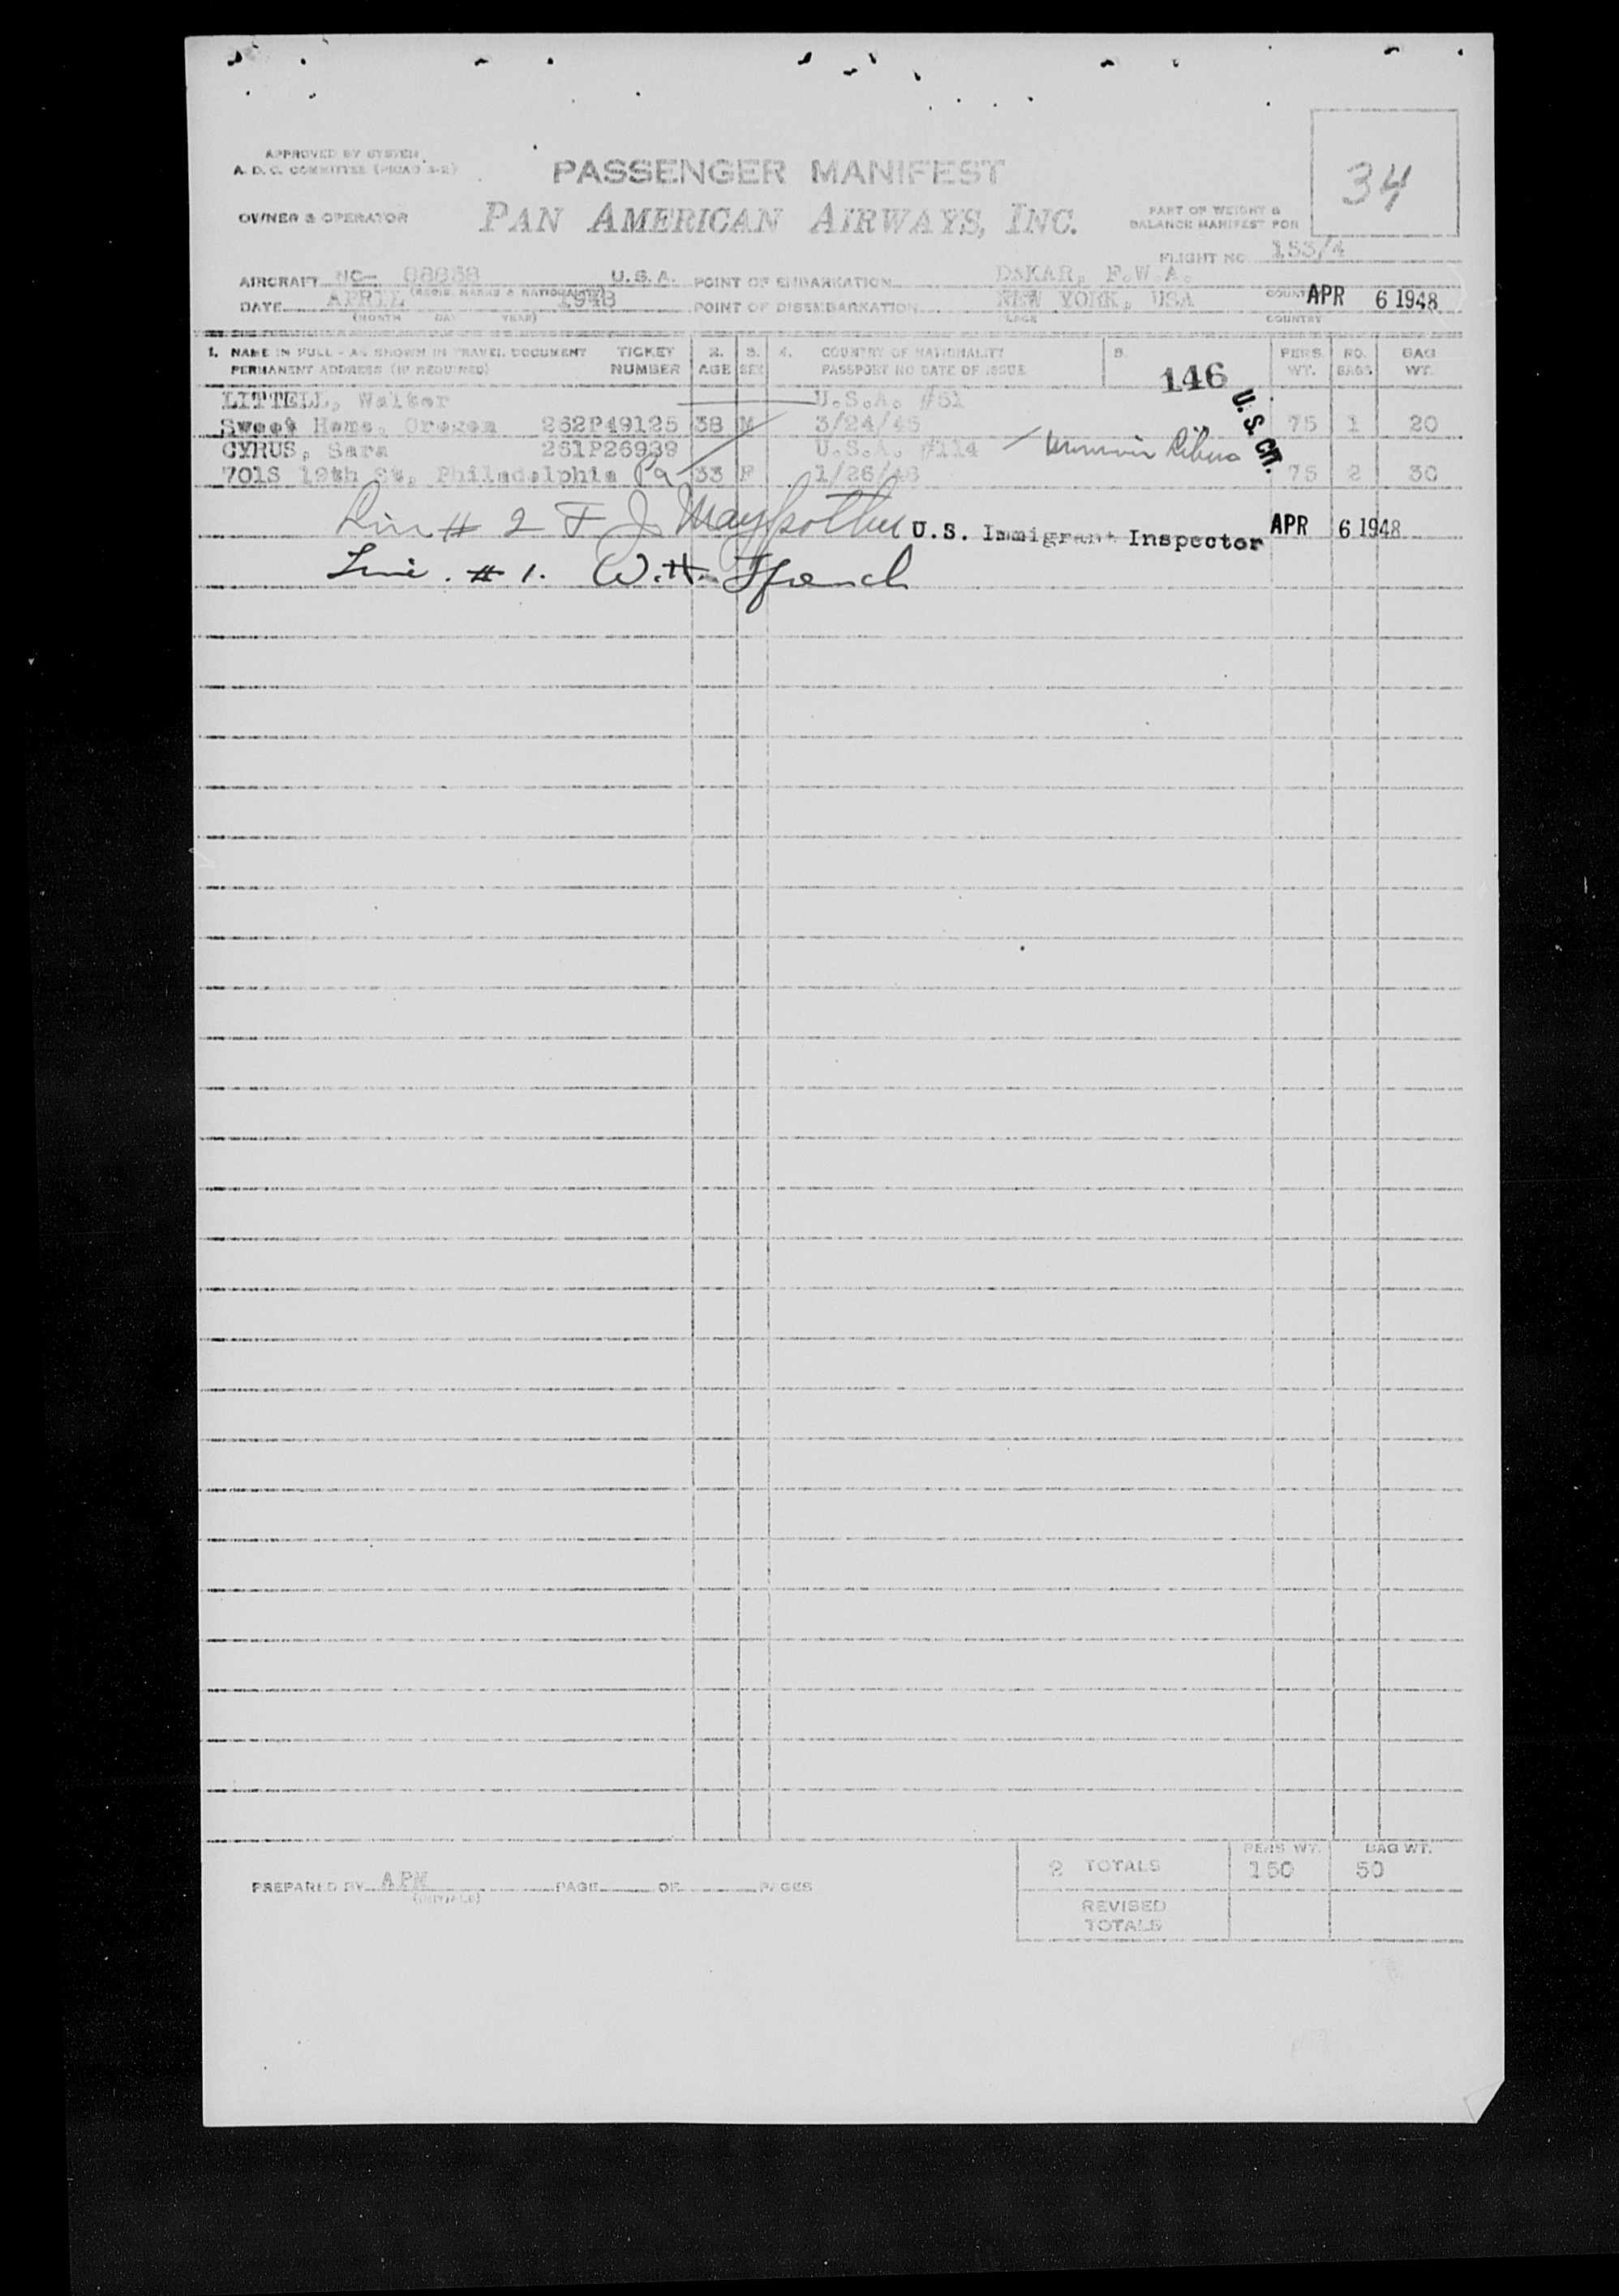 APPROVED BY SYSTEM
A. D. C. COMMITTEE (PICAO 3-2)
PASSENGER MANIFEST
34
OWNER & OPERATOR
PAN AMERICAN AIRWAYS, INC.
PART OF WEIGHT &
BALANCE MANIFEST FOR
FLIGHT NO 153/4
AIRCRAFT NC- 88858 U.S.A. POINT OF EMBARKATION DAKAR, F.W.A.
(REGIS. MARKS & NATIONALITY)
DATE APRIL 1948 POINT OF DISEMBARKATION NEW YORK, USA APR 6 1948
(MONTH DAY YEAR) PLACE COUNTRY
1. NAME IN FULL - AS SHOWN IN TRAVEL DOCUMENT TICKET 2. 3. 4. COUNTRY OF NATIONALITY 5. PERS. NO. BAG
PERMANENT ADDRESS (IF REQUIRED) NUMBER AGE SEX PASSPORT NO DATE OF ISSUE 146 WT. BAGS WT.
LITTELL, Walter U.S.A. #51 U.S. CIT.
Sweet Home, Oregon 262P49125 38 M 3/24/45 75 1 20
CYRUS, Sara 261P26939 U.S.A. #114
701S 19th St, Philadelphia Pa 33 F 1/26/48 75 2 30
Line # 2 F J U.S. Immigrant Inspector APR 6 1948
Line. # 1. W. H. French
PREPARED BY APN PAGE OF PAGES
(INITIALS)
2 TOTALS PERS WT. 150 BAG WT. 50
REVISED
TOTALS